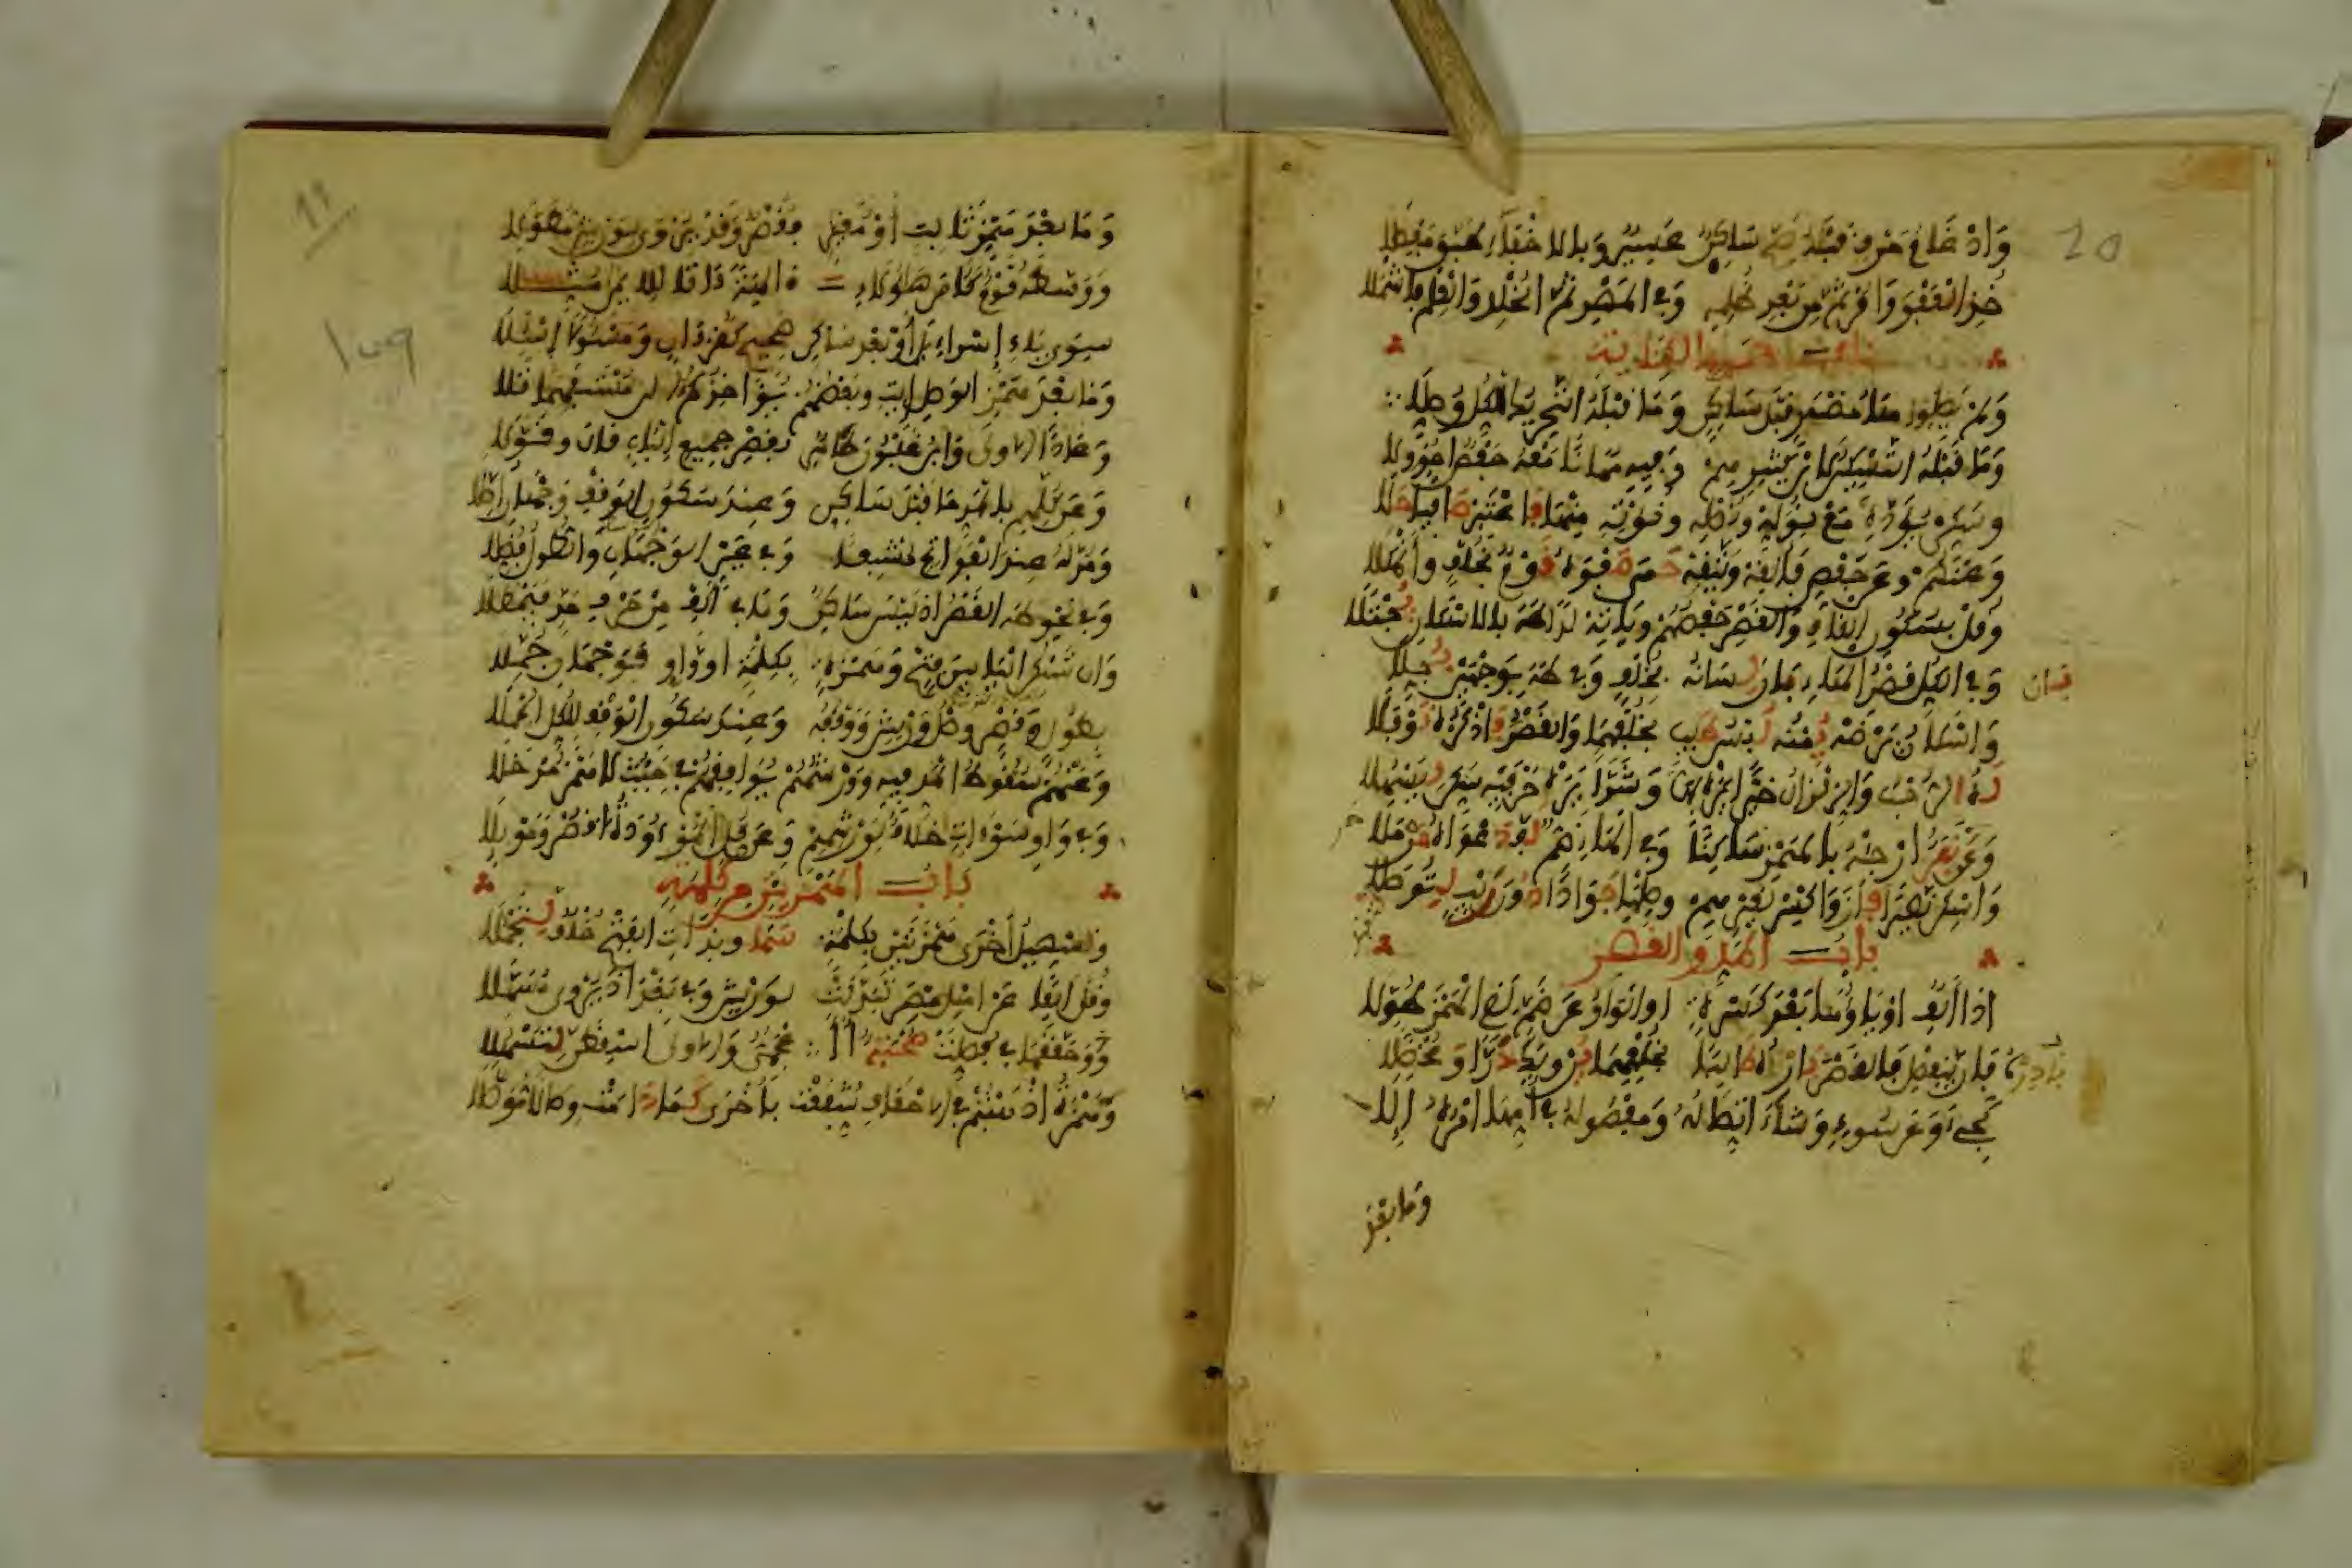 20
وَإِدْغَامُ حَرْفٍ قَبْلَهُ صَحَّ سَاكِنٌ عَسِيرٌ وَبِالِاخْفَاءِ طَبَّقَ مَفْصِلَا
خُذِ الْعَفْوَ وَامُرْ ثُمَّ مِنْ بَعْدِ ظُلْمِهِ وَفِي الْمَهْدِ ثُمَّ الْخُلْدِ وَالْعِلْمِ فَاشْمُلَا
باب هاء الكناية
وَلَمْ يَصِلُوا هَا مُضْمَرٍ قَبْلَ سَاكِنٍ وَمَا قَبْلَهُ التَّحْرِيكُ لِلْكُلِّ وُصِّلَا
وَمَا قَبْلَهُ التَّسْكِينُ لِابْنِ كَثِيرِهِمْ وَفِيهِ مُهَانًا مَعْهُ حَفْصٌ أَخُو وِلَا
وَسَكِّنْ يُؤَدِّهْ مَعْ نُوَلِّهْ وَنُصْلِهِ وَنُؤْتِهِ مِنْهَا فَاعْتَبِرْ صَافِيًا حَلَا
وَعَنْهُمْ وَعَنْ حَفْصٍ فَأَلْقِهْ وَيَتَّقِهْ حَمَى صَفْوَهُ قَوْمٌ بِخُلْفٍ وَأَنْهَلَا
وَقُلْ بِسُكُونِ الْقَافِ وَالْقَصْرِ حَفْصُهُمْ وَيَأْتِهْ لَدَى طَهَ بِالِاسْكَانِ يُجْتَلَا
وَفِي الْكُلِّ قَصْرُ الْهَاءِ بَانَ لِسَانُهُ بِخُلْفٍ وَفِي طَهَ بِوَجْهَيْنِ بُجِّلَا
وَإِسْكَانُ يَرْضَهُ يُمْنُهُ لُبْسُ طَيِّبٍ بِخُلْفِهِمَا وَالْقَصْرُ فَاذْكُرْهُ نَوْفَلَا
لَهُ الرُّحْبُ وَالزِّلْزَالُ خَيْرًا يَرَهْ بِهَا وَشَرًّا يَرَهْ حَرْفَيْهِ سَكِّنْ لِيَسْهُلَا
وَعَى نَفَرٌ أَرْجِئْهُ بِالْهَمْزِ سَاكِنًا وَفِي الْهَاءِ ضَمٌّ لَفَّ دَعْوَاهُ حَرْمَلَا
وَأَسْكِنْ نَصِيرًا فَازَ وَاكْسِرْ لِغَيْرِهِمْ وَصِلْهَا جَوَادًا دُونَ رَيْبٍ لِتُوصَلَا
باب المد والقصر
إِذَا أَلِفٌ أَوْ يَاؤُهَا بَعْدَ كَسْرَةٍ أَوِ الْوَاوُ عَنْ ضَمٍّ لَقِي الْهَمْزَ طُوِّلَا
فَإِنْ يَنْفَصِلْ فَالْقَصْرَ بَادِرْهُ طَالِبًا بِخُلْفِهِمَا يُرْوِيكَ دَرًّا وَمُخْضَلَا
كَجِيءَ وَعَنْ سُوءٍ وَشَاءَ اتِّصَالُهُ وَمَفْصُولُهُ فِي أُمِّهَا أَمْرُهُ إِلَى
وما بعد
وَمَا بَعْدَ هَمْزٍ ثَابِتٍ أَوْ مُغَيَّرٍ فَقَصْرٌ وَقَدْ يُرْوَى لِوَرْشٍ مُطَوَّلَا
وَوَسَّطَهُ قَوْمٌ كَآمَنَ هَؤُلَاءِ آلِهَةً آتَى لِلِايمَانِ مُثِّلَا
سِوَى يَاءِ إِسْرَاءِيلَ أَوْ بَعْدَ سَاكِنٍ صَحِيحٍ كَقُرْآنٍ وَمَسْئُولًا اسْأَلَا
وَمَا بَعْدَ هَمْزِ الْوَصْلِ إِيتِ وَبَعْضُهُمْ يُؤَاخِذُكُمُ الَانَ مُسْتَفْهِمًا تَلَا
وَعَادًا الْاولَى وَابْنُ غَلْبُونَ طَاهِرٌ بِقَصْرِ جَمِيعِ الْبَابِ قَالَ وَقَوَّلَا
وَعَنْ كُلِّهِمْ بِالْمَدِّ مَا قَبْلَ سَاكِنٍ وَعِنْدَ سُكُونِ الْوَقْفِ وَجْهَانِ أُصِّلَا
وَمُدَّ لَهُ عِنْدَ الْفَوَاتِحِ مُشْبِعًا وَفِي عَيْنٍ الْوَجْهَانِ وَالطُّولُ فُضِّلَا
وَفِي نَحْوِ طَهَ الْقَصْرُ إِذْ لَيْسَ سَاكِنٌ وَمَا فِي أَلِفْ مِنْ حَرْفِ مَدٍّ فَيُمْطَلَا
وَإِنْ تَسْكُنِ الْيَا بَيْنَ فَتْحٍ وَهَمْزَةٍ بِكِلْمَةٍ أَوْ وَاوٌ فَوَجْهَانِ جُمِّلَا
بِطُولٍ وَقَصْرٍ وَصْلُ وَرْشٍ وَوَقْفُهُ وَعِنْدَ سُكُونِ الْوَقْفِ لِلْكُلِّ أُعْمِلَا
وَعَنْهُمْ سُقُوطُ الْمَدِّ فِيهِ وَوَرْشُهُمْ يُوَافِقُهُمْ فِي حَيْثُ لَا هَمْزَ مُدْخَلَا
وَفِي وَاوِ سَوْءَاتٍ خِلَافٌ لِوَرْشِهِمْ وَعَنْ كُلٍّ الْمَوْءُودَةُ اقْصُرْ وَمَوْئِلَا
باب الهمزتين من كلمة
وَتَسْهِيلُ أُخْرَى هَمْزَتَيْنِ بِكِلْمَةٍ سَمَا وَبِذَاتِ الْفَتْحِ خُلْفٌ لِتَجْمُلَا
وَقُلْ أَلِفًا عَنْ أَهْلِ مِصْرَ تَبَدَّلَتْ لِوَرْشٍ وَفِي بَغْدَادَ يُرْوَى مُسَهَّلَا
وَحَقَّقَهَا فِي فُصِّلَتْ صُحْبَةٌ أَاْ عْجَمِيٌّ وَالْاولَى أَسْقِطَنَّ لِتَسْهُلَا
وَهَمْزَةُ أَذْهَبْتُمْ فِي الَاحْقَافِ شُفِّعَتْ بِأُخْرَى كَمَا دَامَتْ وِصَالًا مُوَصَّلَا